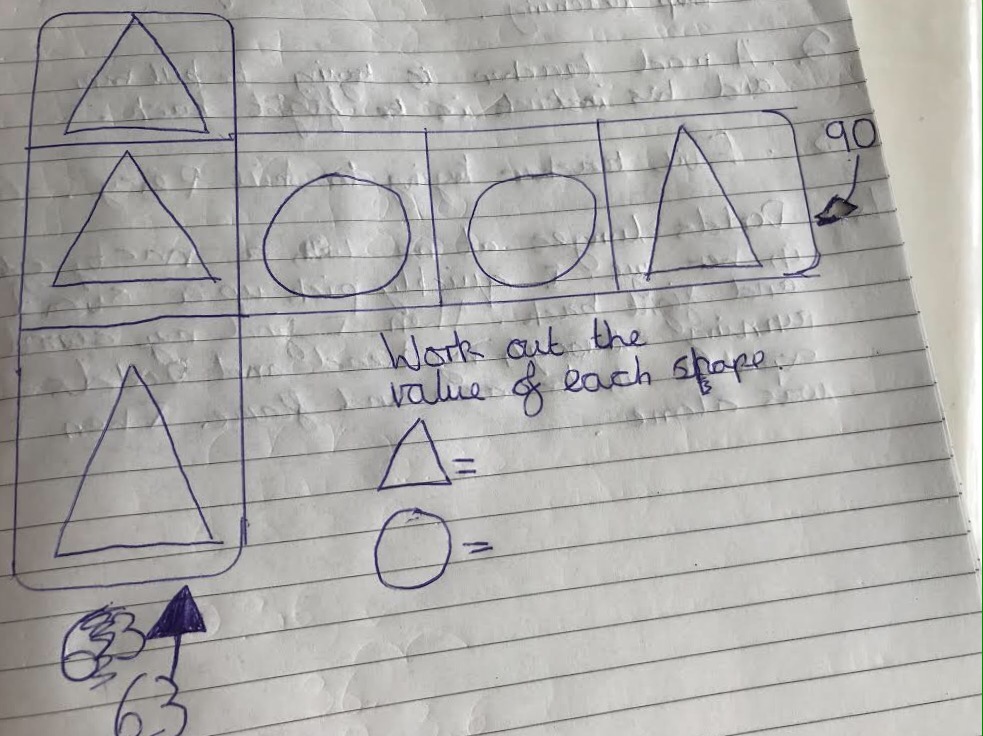 90
Work out the
value of each shape.
=
=
63